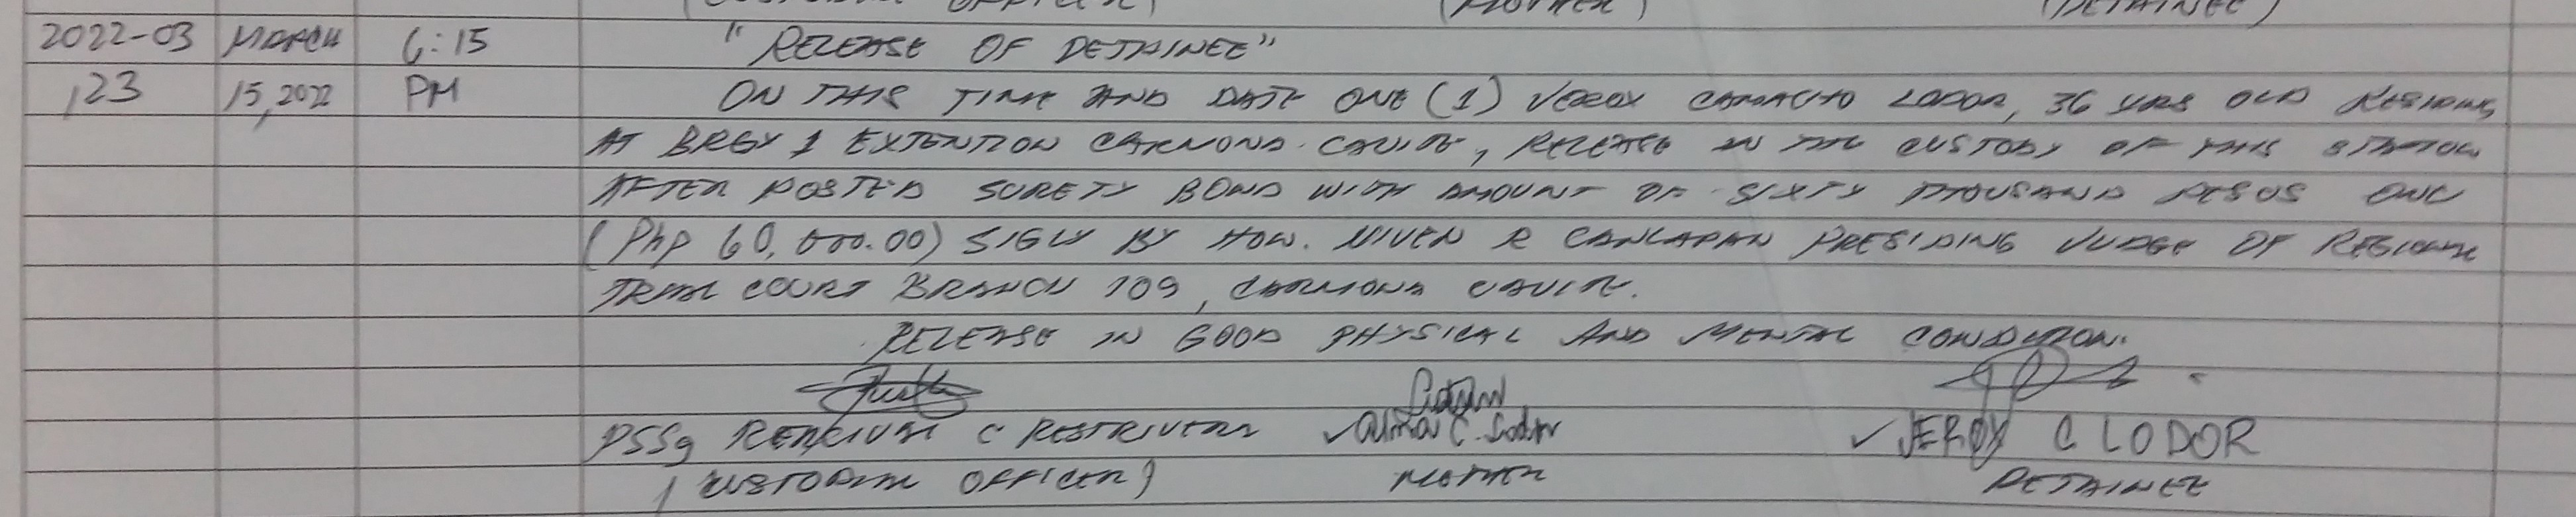 (CUSTODIAL OFFICER) (MOTHER) (DETAINEE)
2022-03 MARCH 6:15 "RELEASE OF DETAINEE"
,23 15,2022 PM ON THIS TIME AND DATE ONE (1) JEROY CAMACHO LODOR, 36 YRS OLD RESIDING
AT BRGY 1 EXTENTION CARMONA CAVITE, RELEASE IN THE CUSTODY OF THIS STATION
AFTER POSTED SURETY BOND WITH AMOUNT OF SIXTY THOUSAND PESOS ONLY
(Php 60,000.00) SIGN BY HON. NIVEN R CANLAPAN PRESIDING JUDGE OF REGIONAL
TRIAL COURT BRANCH 109, CARMONA CAVITE.
RELEASE IN GOOD PHYSICAL AND MENTAL CONDITION.
PSSg C RESTRIVERA Alma C. Lodor JEROY C LODOR
(CUSTODIAL OFFICER) MOTHER DETAINEE